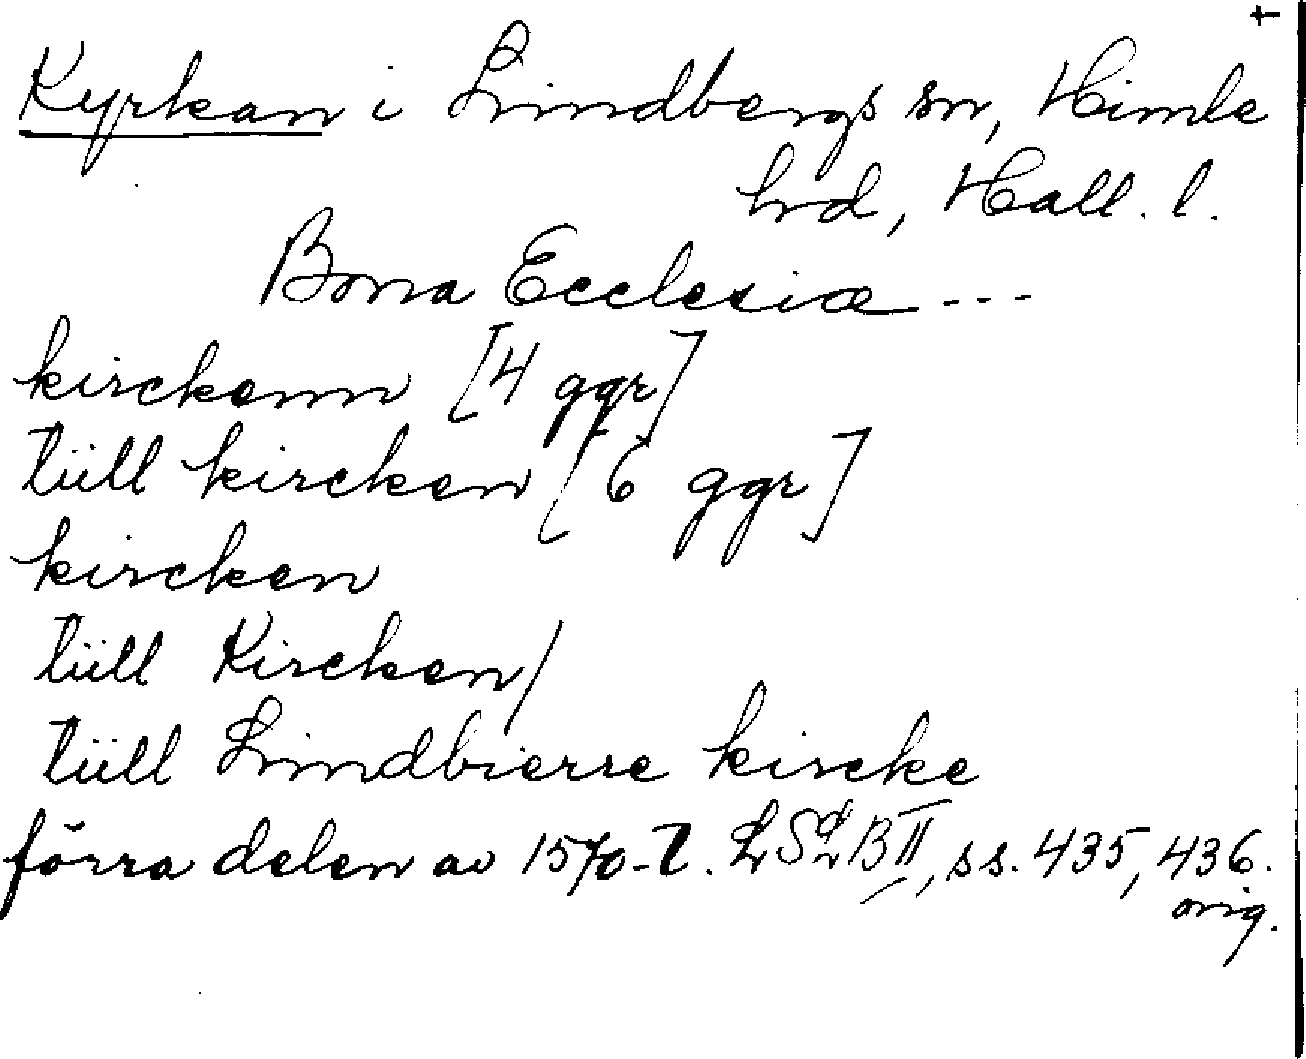 †
Kyrkan i Lindbergs sn, Himle
hrd, Hall. l.
Bona Ecclesiæ ---
kirckenn [4 ggr]
tüll kircken [6 ggr]
kircken
tüll Kircken/
tüll Lindbierre kircke
förra delen av 1570-t. LSLB II, ss. 435, 436.
orig.